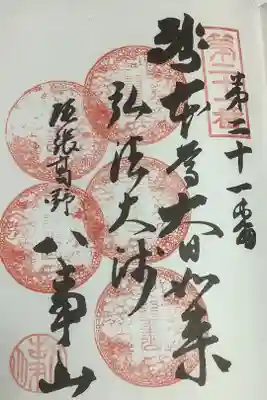 第二十一番
第二十一番
総本尊大日如来
弘法大師
尾張高野
八事山